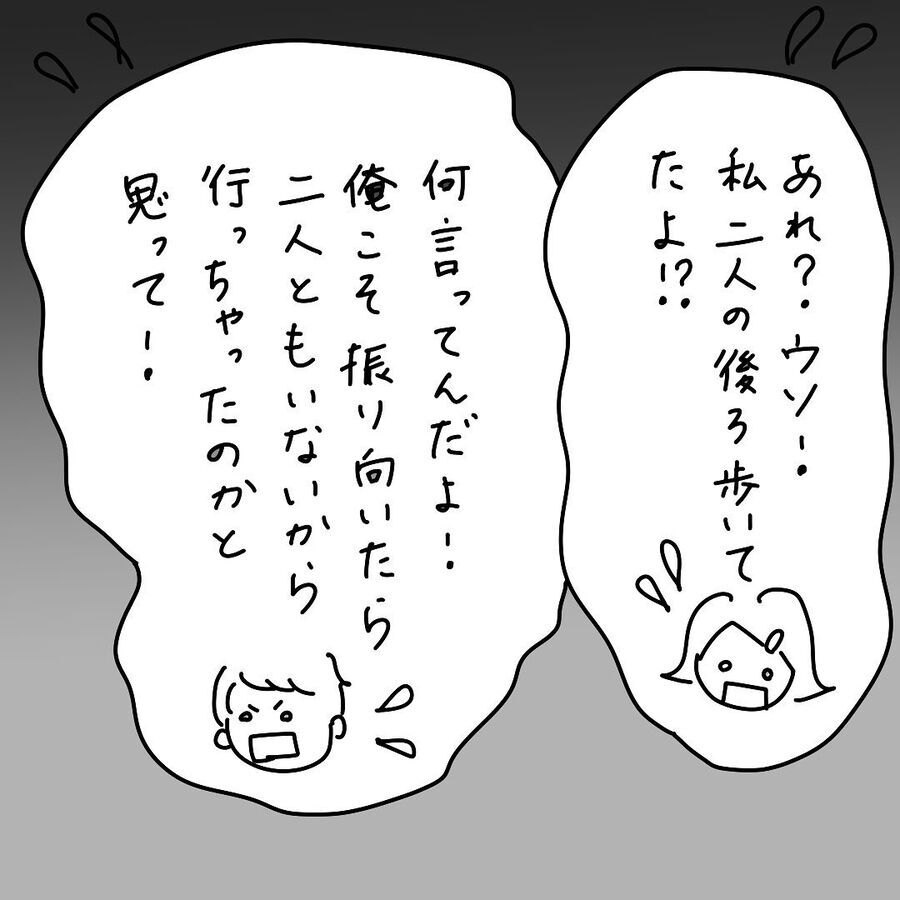 あれ?ウソ!
私二人の後ろ歩いて
たよ!?
何言ってんだよ!
俺こそ振り向いたら
二人ともいないから
行っちゃったのかと
思って!